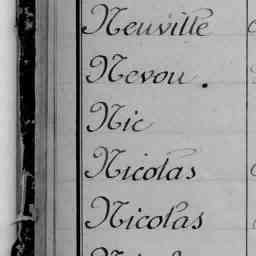 Neuville
Nevou.
Nic
Nicolas
Nicolas